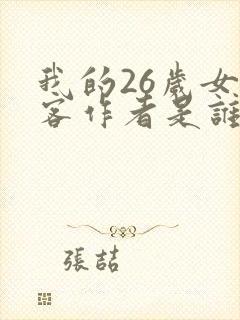 我的26歲女
客作者是誰
張喆